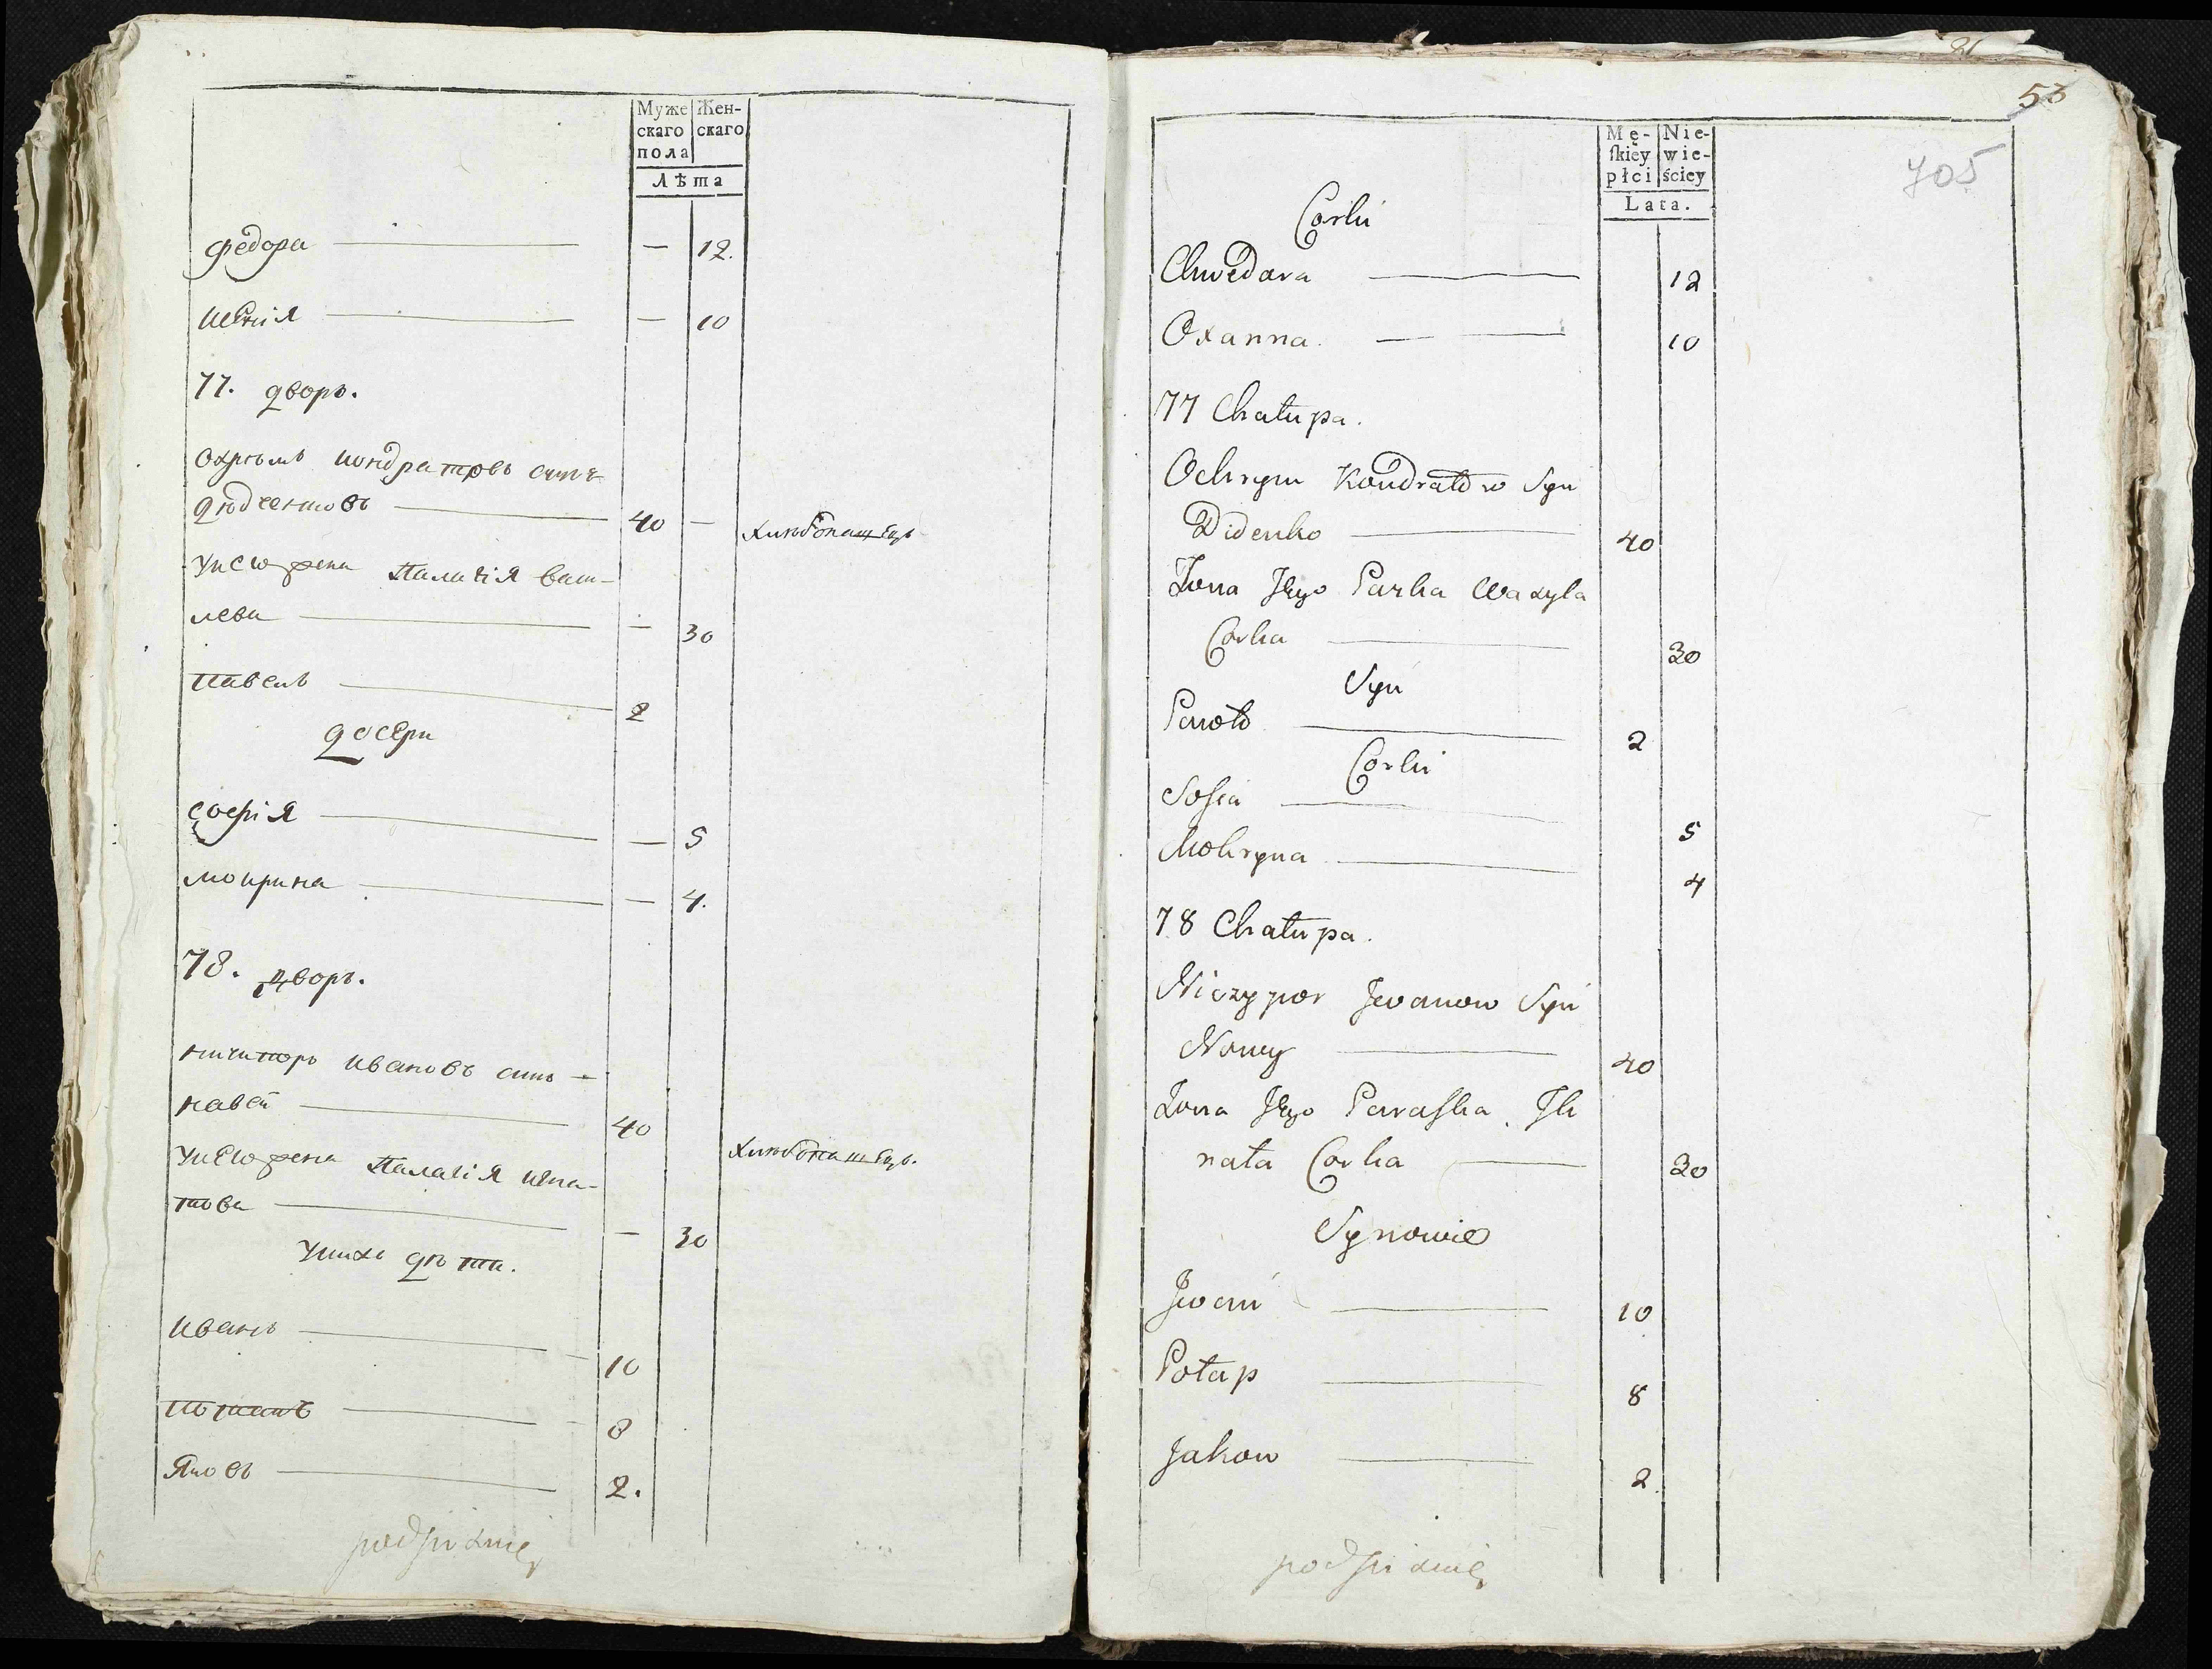 Муже
скаго
пола
Жен-
скаго
Лѣта
Федора — 12.
— 10
77. дворъ.
Охрѣмъ Кондратовъ синъ
40 — хлѣбопашецъ
Унего жена Палагія Васи-
лева — 30
Павелъ 2
дочери
Софія — 5
Мокрина — 4.
78. дворъ.
Ничипоръ Ивановъ синъ
Навей 40
Унего жена Палагія Игна- хлѣбопашецъ.
това — 30
Унихъ дѣти.
Иванъ 10
Потапъ 8
Яковъ 2.
81
53
705
Mę-
skiey
płci
Nie-
wie-
ściey
Lata.
Corki
Chwedora 12
Oxanna. 10
77 Chałupa.
Ochrym Kondratow Syn
Didenko 40
Żona Jego Parka Wasyla
Corka 30
Syn
Paweł 2
Corki
Sofia 5
Mokryna 4
78 Chałupa.
Niczypor Jwanow Syn
Nowy 40
Żona Jego Paraska Ih
nata Corka 30
Synowie
Jwan 10
Potap 8
Jakow 2